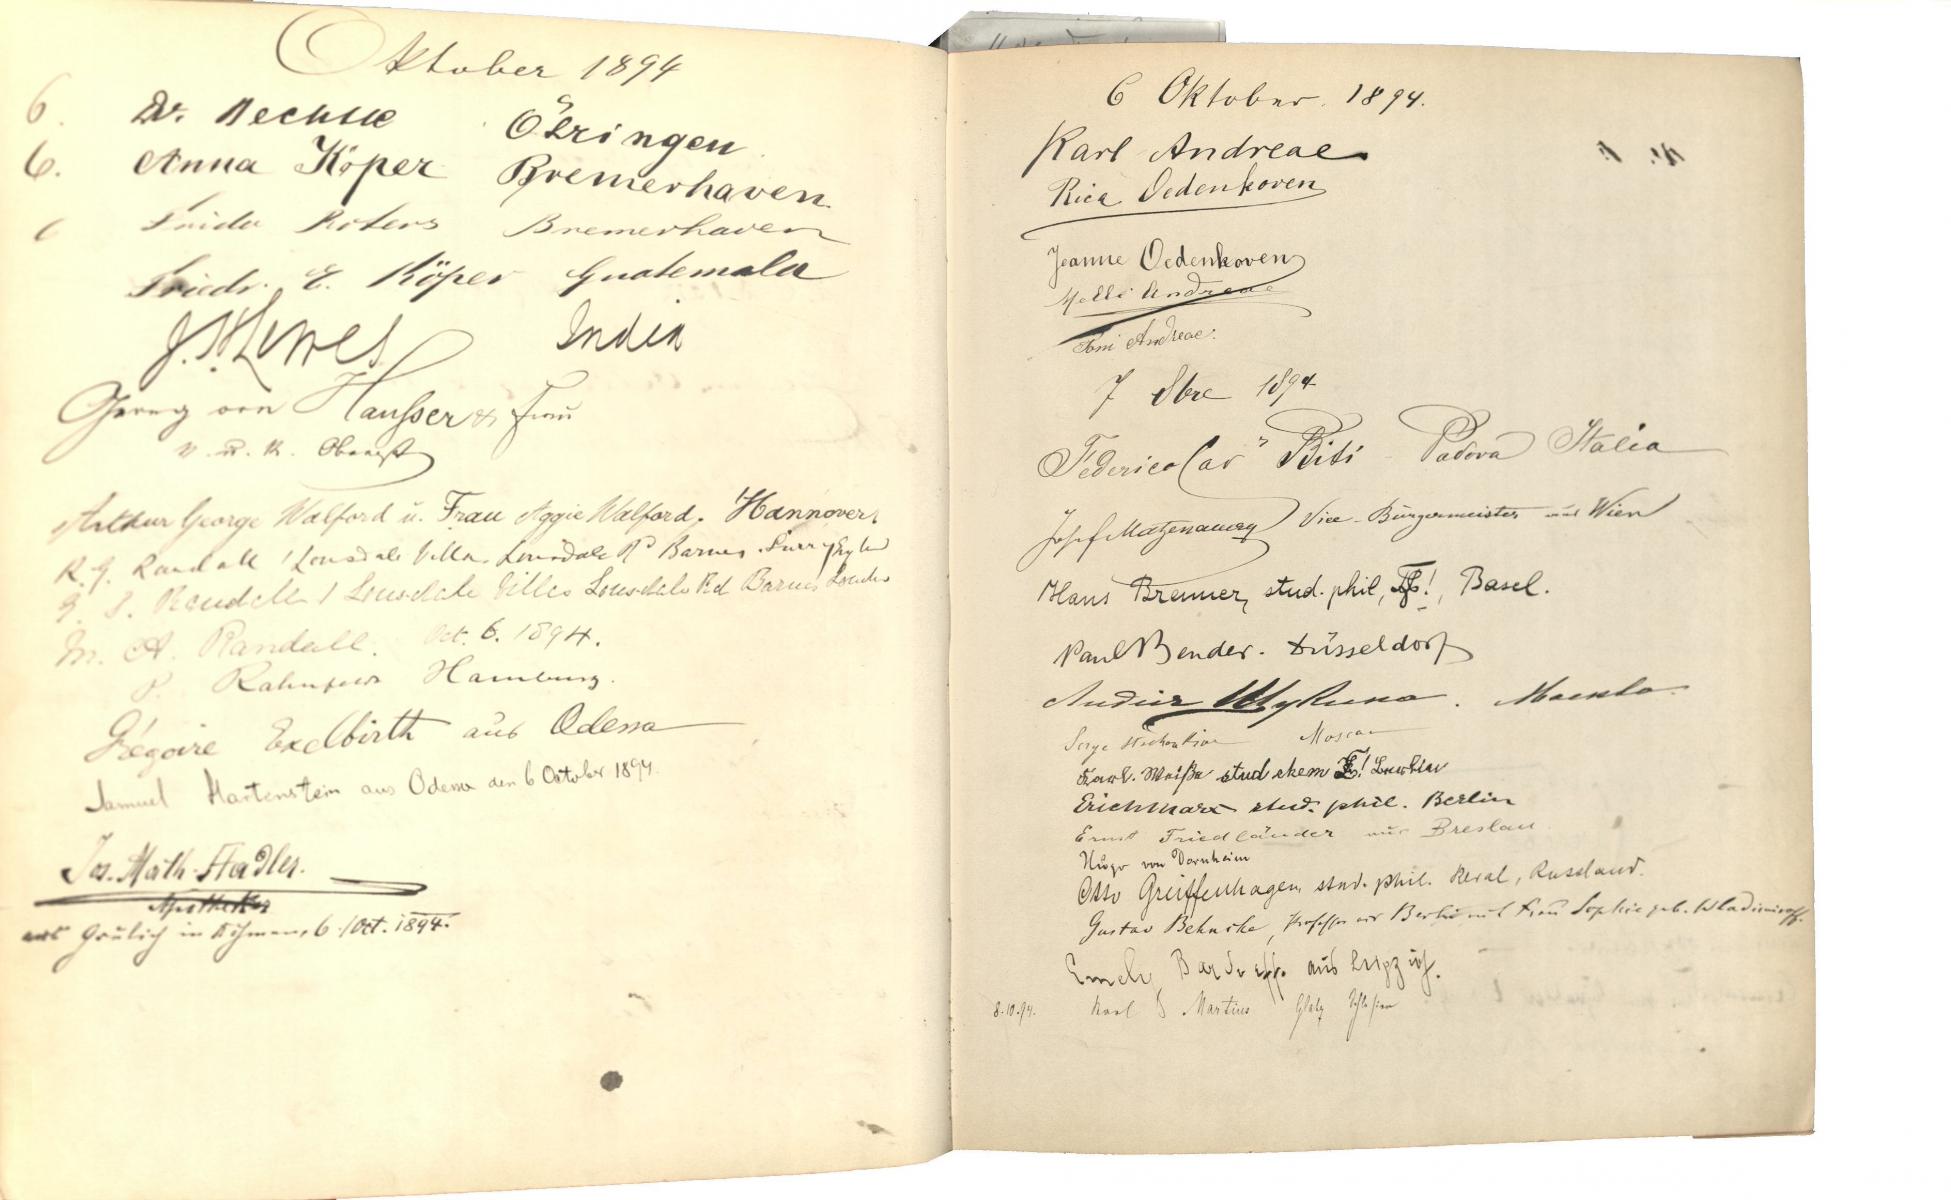 Oktober 1894
6. Dr. Öhringen
6. Anna Köper Bremerhaven
6 Frida Bremerhaven
Friedr. E. Köper Guatemala
India
Georg von Hausser & Frau
Arthur George Walford u. Frau Aggie Walford. Hannover
R. G. Randall 1 Lonsdale Villa. Lonsdale Rd Barnes. Surry
Randall 1 Lonsdale Villas Lonsdale Rd Barnes London
M. A. Randall. Oct. 6. 1894.
Hamburg.
Grégoire Exelbirth aus Odessa
Samuel Hartenstein aus Odessa den 6 October 1894.
Jos. Math. Stadler.
Apotheker
aus Grulich in Böhmen, 6. Oct. 1894.
6 Oktober. 1894.
Karl Andreae
Rica Oedenkoven
Jeanne Oedenkoven
Melli Andreae
Toni Andreae.
7 8bre 1894
Federico Cav Padova Italia
Josef Matzenauer Vice-Bürgermeister aus Wien
Hans Brenner, stud. phil, Basel.
Paul Bender. Düsseldorf
Serge Moscou
Karl. Weiße stud chem Berlin
Erich Marx stud. phil. Berlin
Ernst Friedländer aus Breslau
Hugo von Dornheim
Otto Greiffenhagen, stud. phil. Reval, Russland.
Gustav Behncke, Professor aus Berlin mit Frau Sophie geb. Wladimiroff.
aus Leipzig.
8.10.94. Karl Martius Glatz Schlesien